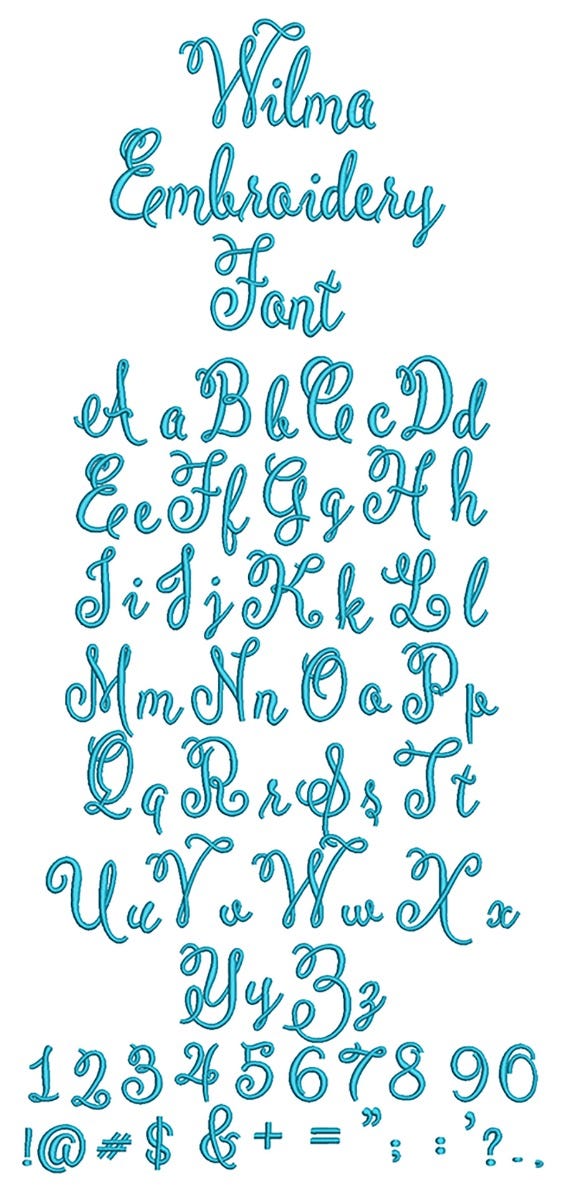 Wilma
Embroidery
Font
A a B b C c D d
E e F f G g H h
I i J j K k L l
M m N n O o P p
Q q R r S s T t
U u V v W w X x
Y y Z z
1 2 3 4 5 6 7 8 9 0
! @ # $ & + = " ; : ' ? - . ,